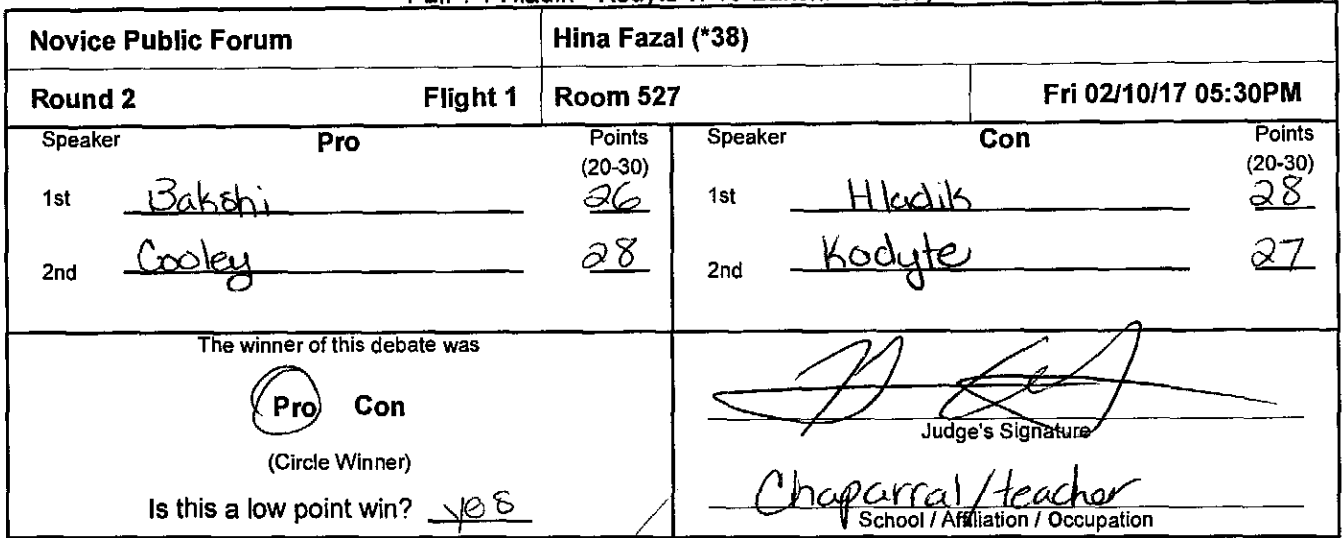 Novice Public Forum Hina Fazal (*38)
Round 2 Flight 1 Room 527 Fri 02/10/17 05:30PM
Speaker Pro Points (20-30)
1st Bakshi 26
2nd Cooley 28
Speaker Con Points (20-30)
1st Hladik 28
2nd Kodyte 27
The winner of this debate was
Pro Con
(Circle Winner)
Is this a low point win? yes
Judge's Signature
Chaparral / teacher
School / Affiliation / Occupation